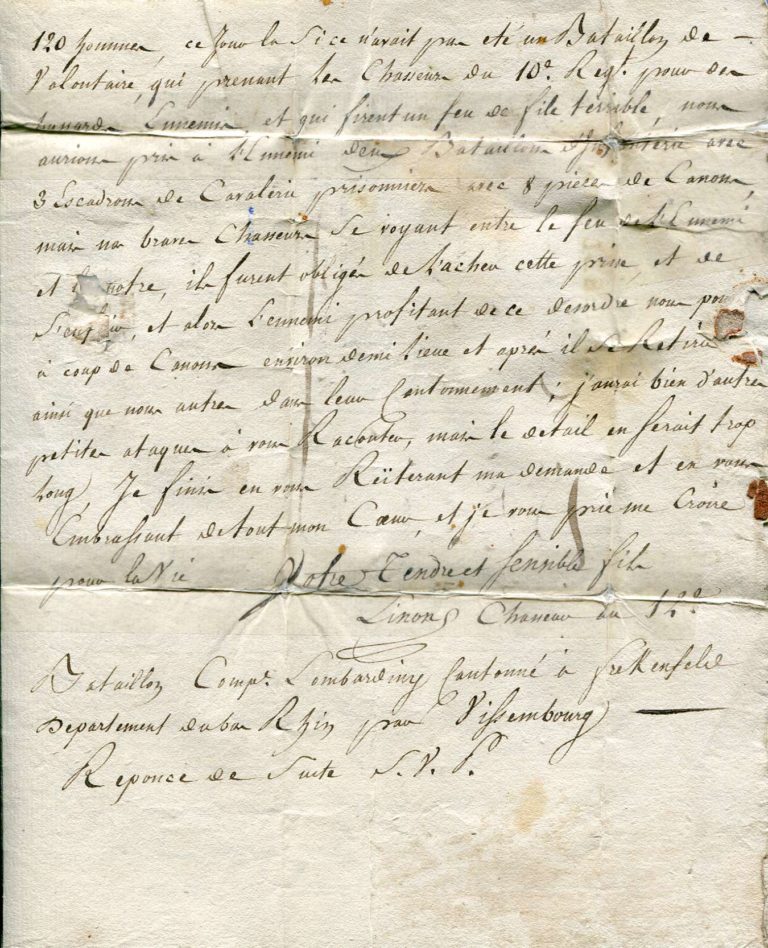 120 hommes, ce jour la si ce n'avait pas eté un Bataillon de
Volontaire, qui prenant les Chasseurs du 10e. Regt. pour des
Ennemis et qui firent un feu de file terrible, nous
aurions pris à l'Ennemi deux Bataillons d'Infanterie avec
3 Escadrons de Cavalerie prisonniers avec 8 pieces de Canons,
mais nos braves Chasseurs se voyant entre le feu de l'Ennemi
et le notre, ils furent obligés de lacher cette prise et de
s'enfuir, et alors l'ennemi profitant de ce desordre nous
à coup de Canons environ demi lieue et après il se Retira
ainsi que nous autres dans leur Cantonnement; j'aurai bien d'autres
petites ataques à vous Raconter, mais le detail en serait trop
long, Je finis en vous Reïterant ma demande et en vous
Embrassant de tout mon Cœur, et je vous prie me Croire
pour la Vie Votre Tendre et sensible fils
Linon Chasseur au 12e.
Bataillon Compe. Lombardiny Cantonné à frekenfeld
Departement du bas Rhin par Vissembourg
Reponce de Suite S.V.P.